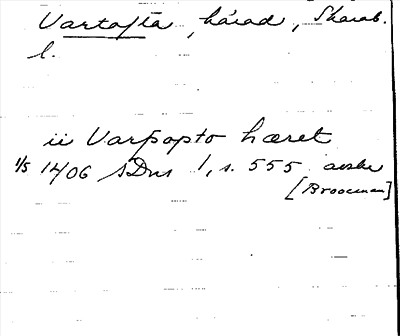 Vartofta, härad, Skarab.
l.
ii Varþopto hæret
1/5 1406 SDns 1, s. 555 avskr
[Brocman]